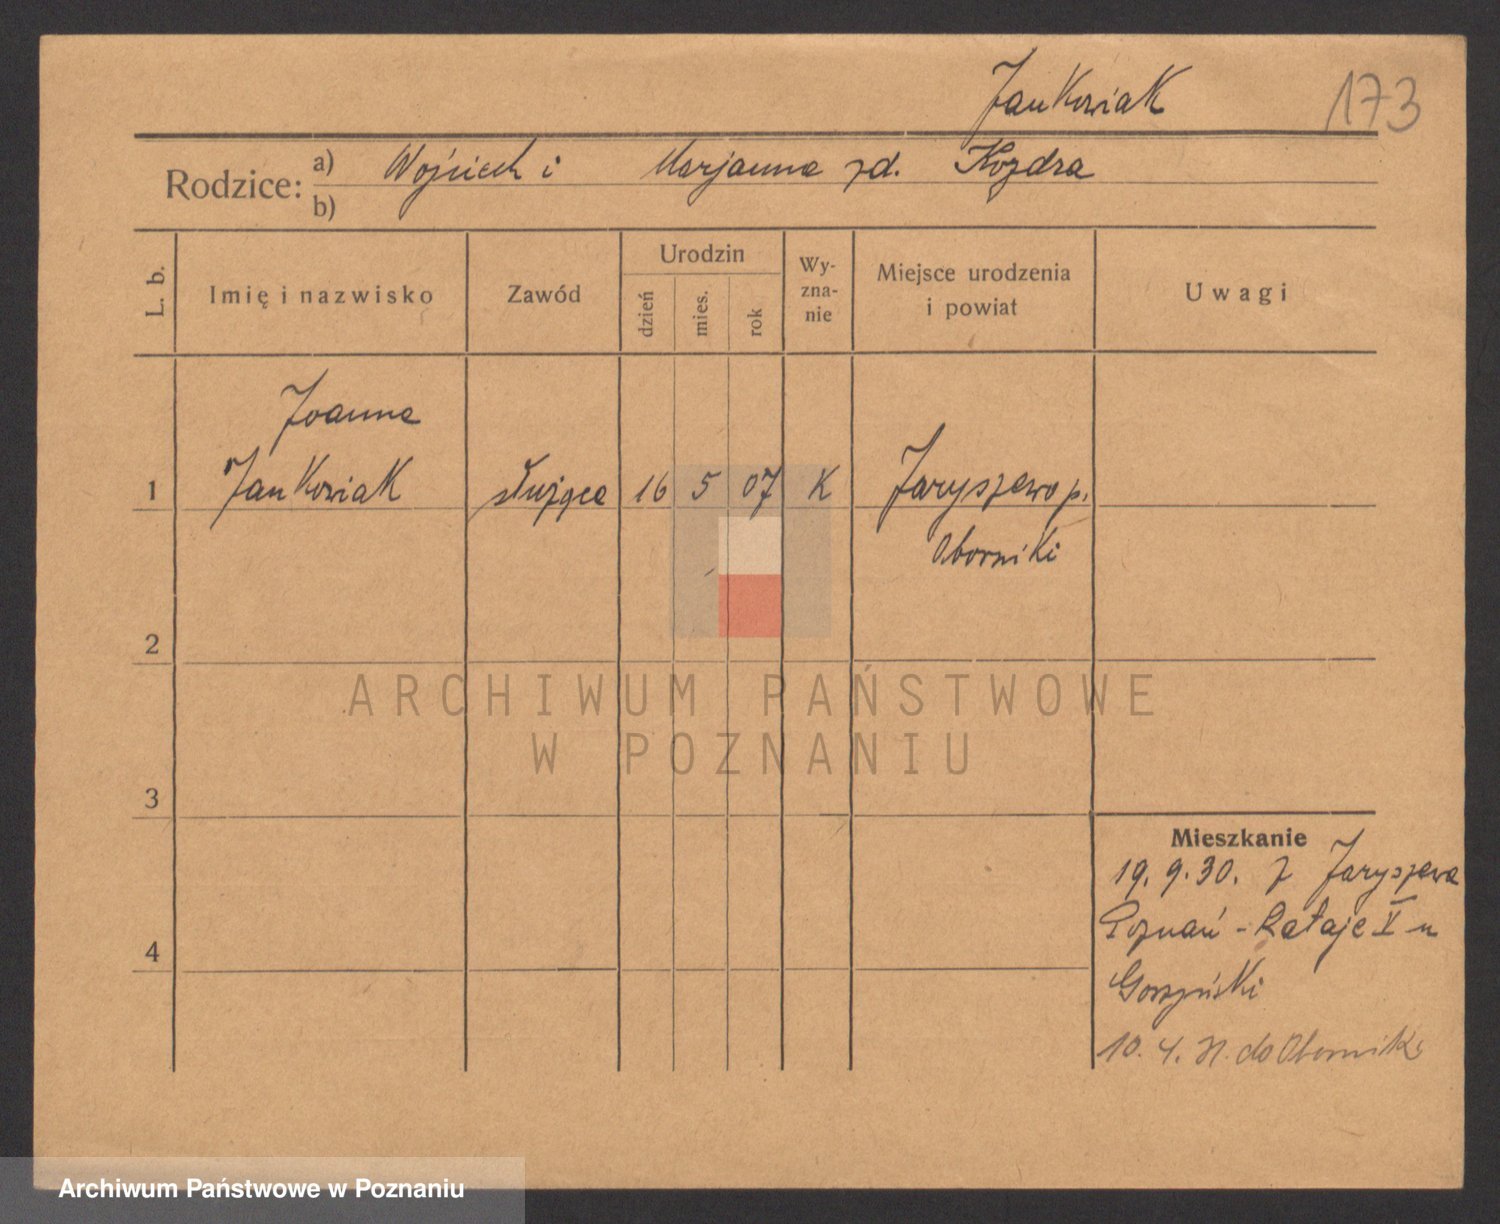 Jankowiak 173
Rodzice: a) Wojciech i Marjanna zd. Kozdra
b)
L. b. Imię i nazwisko Zawód Urodzin dzień mies. rok Wy-zna-nie Miejsce urodzenia i powiat Uwagi
Joanna
1 Jankowiak służąca 16 5 07 K Jaryszewo p.
Oborniki
2
ARCHIWUM PAŃSTWOWE
W POZNANIU
3
Mieszkanie
19. 9. 30. z Jaryszewa
Poznań - Rataje V u
4
10. 4. 31. do Oborniki
Archiwum Państwowe w Poznaniu